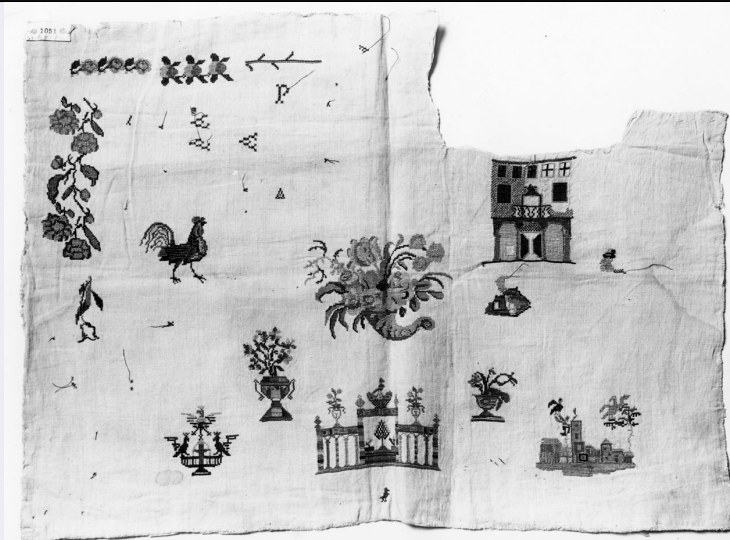 1051
P